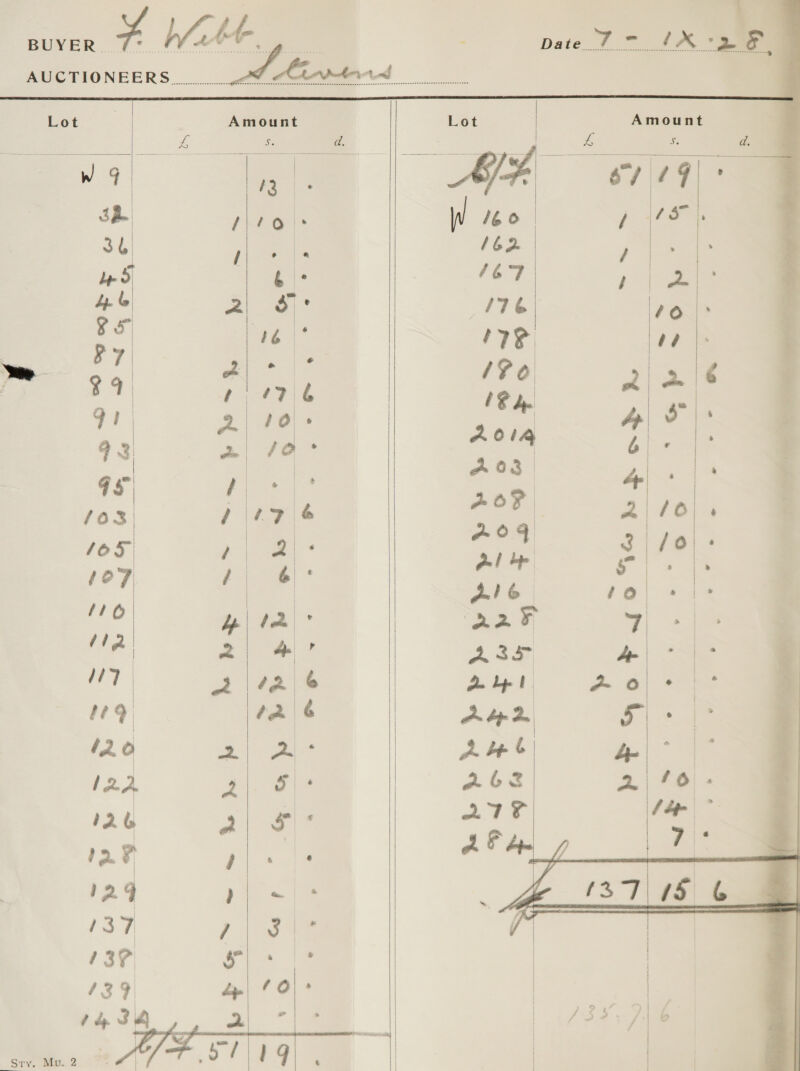 BUYER F. Webb. Date 7 - IX · 28.
AUCTIONEERS Stevens
Lot Amount
£ s. d.
W 9 13 .
32 1 10 .
36 1 . .
45 6 .
46 2 5 .
85 16 .
87 2 . .
89 1 17 6
91 2 10 .
93 2 10 .
95 1 . .
103 1 17 6
105 1 2 .
107 1 6 .
110 4 12 .
112 2 4 .
117 2 12 6
119 12 6
120 2 2 .
122 2 5 .
126 2 5 .
128 1 . .
129 1 . .
137 1 3 .
138 5 . .
139 4 10 .
143A 2 . .
B/F. 51 19 .
STY. MU. 2
Lot Amount
£ s. d.
B/F. 51 19 .
W 160 1 15 .
162 1 . .
167 1 2 .
176 10 .
178 11 .
180 2 2 6
184 4 5 .
201A 6 . .
203 4 . .
208 2 10 .
209 3 10 .
214 5 . .
216 10 . .
228 7 . .
235 4 . .
241 20 . .
242 5 . .
246 4 . .
263 2 10 .
278 14 .
284 7 .
£ 137 15 6
135. 7. 6